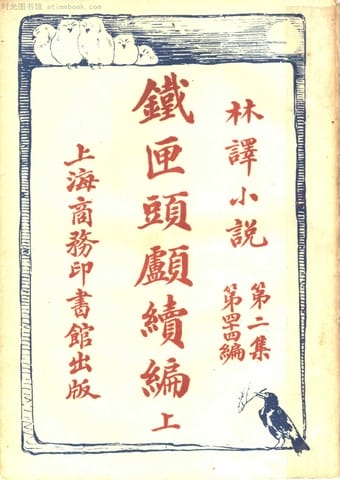 时光图书馆 atimebook.com
林譯小説
第二集
第四十四編
鐵匣頭顱續編 上
上海商務印書館出版